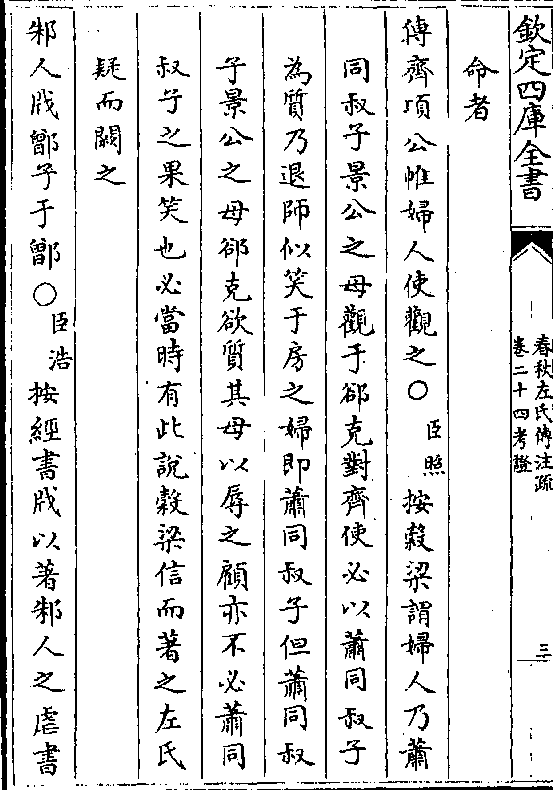 欽定四庫全書
春秋左氏傳注疏
卷二十四考證
三
命者
傳齊頃公帷婦人使觀之○臣照按穀梁謂婦人乃蕭
同叔子景公之母觀于郤克對齊使必以蕭同叔子
為質乃退師似笑于房之婦即蕭同叔子但蕭同叔
子景公之母郤克欲質其母以辱之顧亦不必蕭同
叔子之果笑也必當時有此說穀梁信而著之左氏
疑而闕之
邾人戕鄫子于鄫○臣浩按經書戕以著邾人之虐書